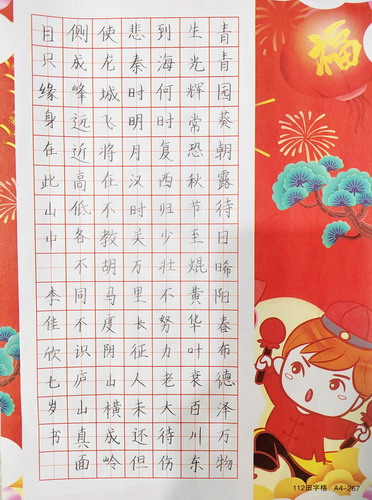 青青园葵朝露待日晞阳春布德泽万物
生光辉常恐秋节至焜黄华叶衰百川东
到海何时复西归少壮不努力老大徒伤
悲秦时明月汉时关万里长征人未还但
使龙城飞将在不教胡马度阴山横成岭
侧成峰远近高低各不同不识庐山真面
目只缘身在此山中 李佳欣七岁书
福
112田字格 A4-267